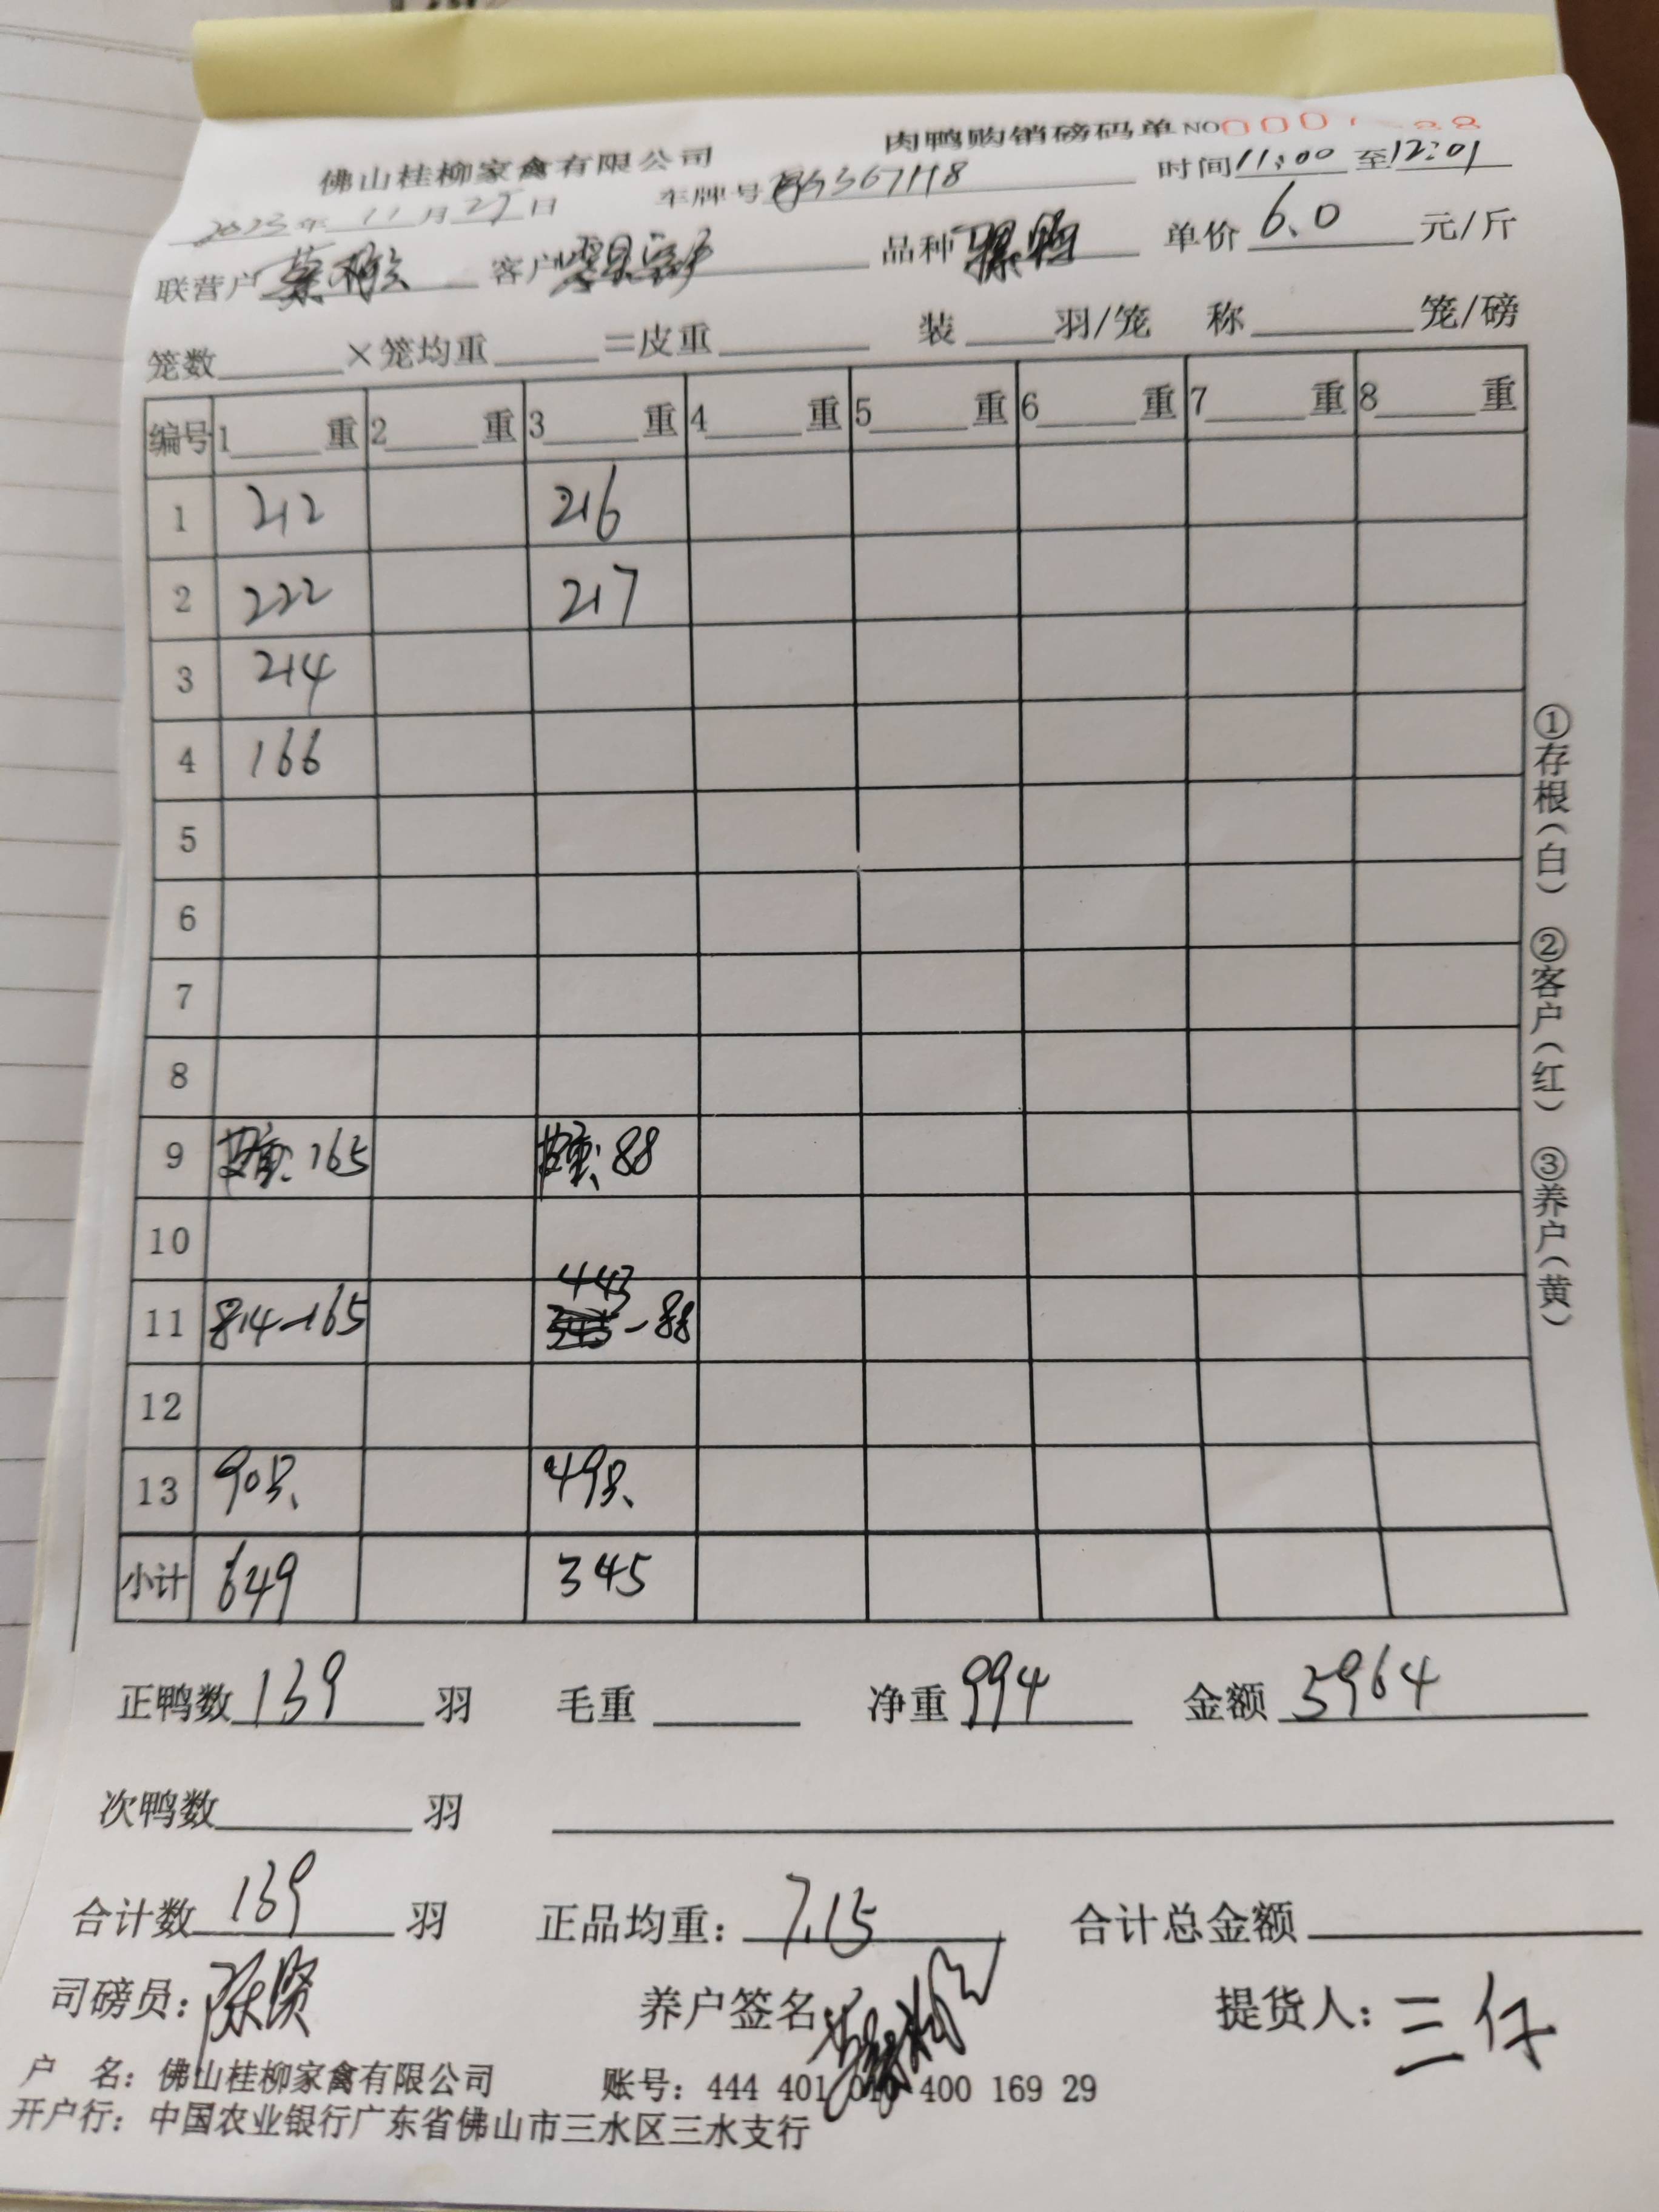 佛山桂柳家禽有限公司 肉鸭购销磅码单 NO
2023年 11月 25日 车牌号 时间11:00 至12:01
联营户 客户 品种 单价 6.0 元/斤
笼数 ×笼均重 =皮重 装 羽/笼 称 笼/磅
编号 1 重 2 重 3 重 4 重 5 重 6 重 7 重 8 重
1 212 216
2 222 217
3 214
4 166
5
6
7
8
9 皮重:165 皮重:88
10
443
11 814-165 -88
12
13 90只 49只
小计 649 345
正鸭数 139 羽 毛重 净重 994 金额 5964
次鸭数 羽
合计数 139 羽 正品均重: 7.15 合计总金额
司磅员: 陈贤 养户签名 提货人: 三仔
户 名: 佛山桂柳家禽有限公司 账号: 444 401 400 169 29
开户行: 中国农业银行广东省佛山市三水区三水支行
①存根(白) ②客户(红) ③养户(黄)